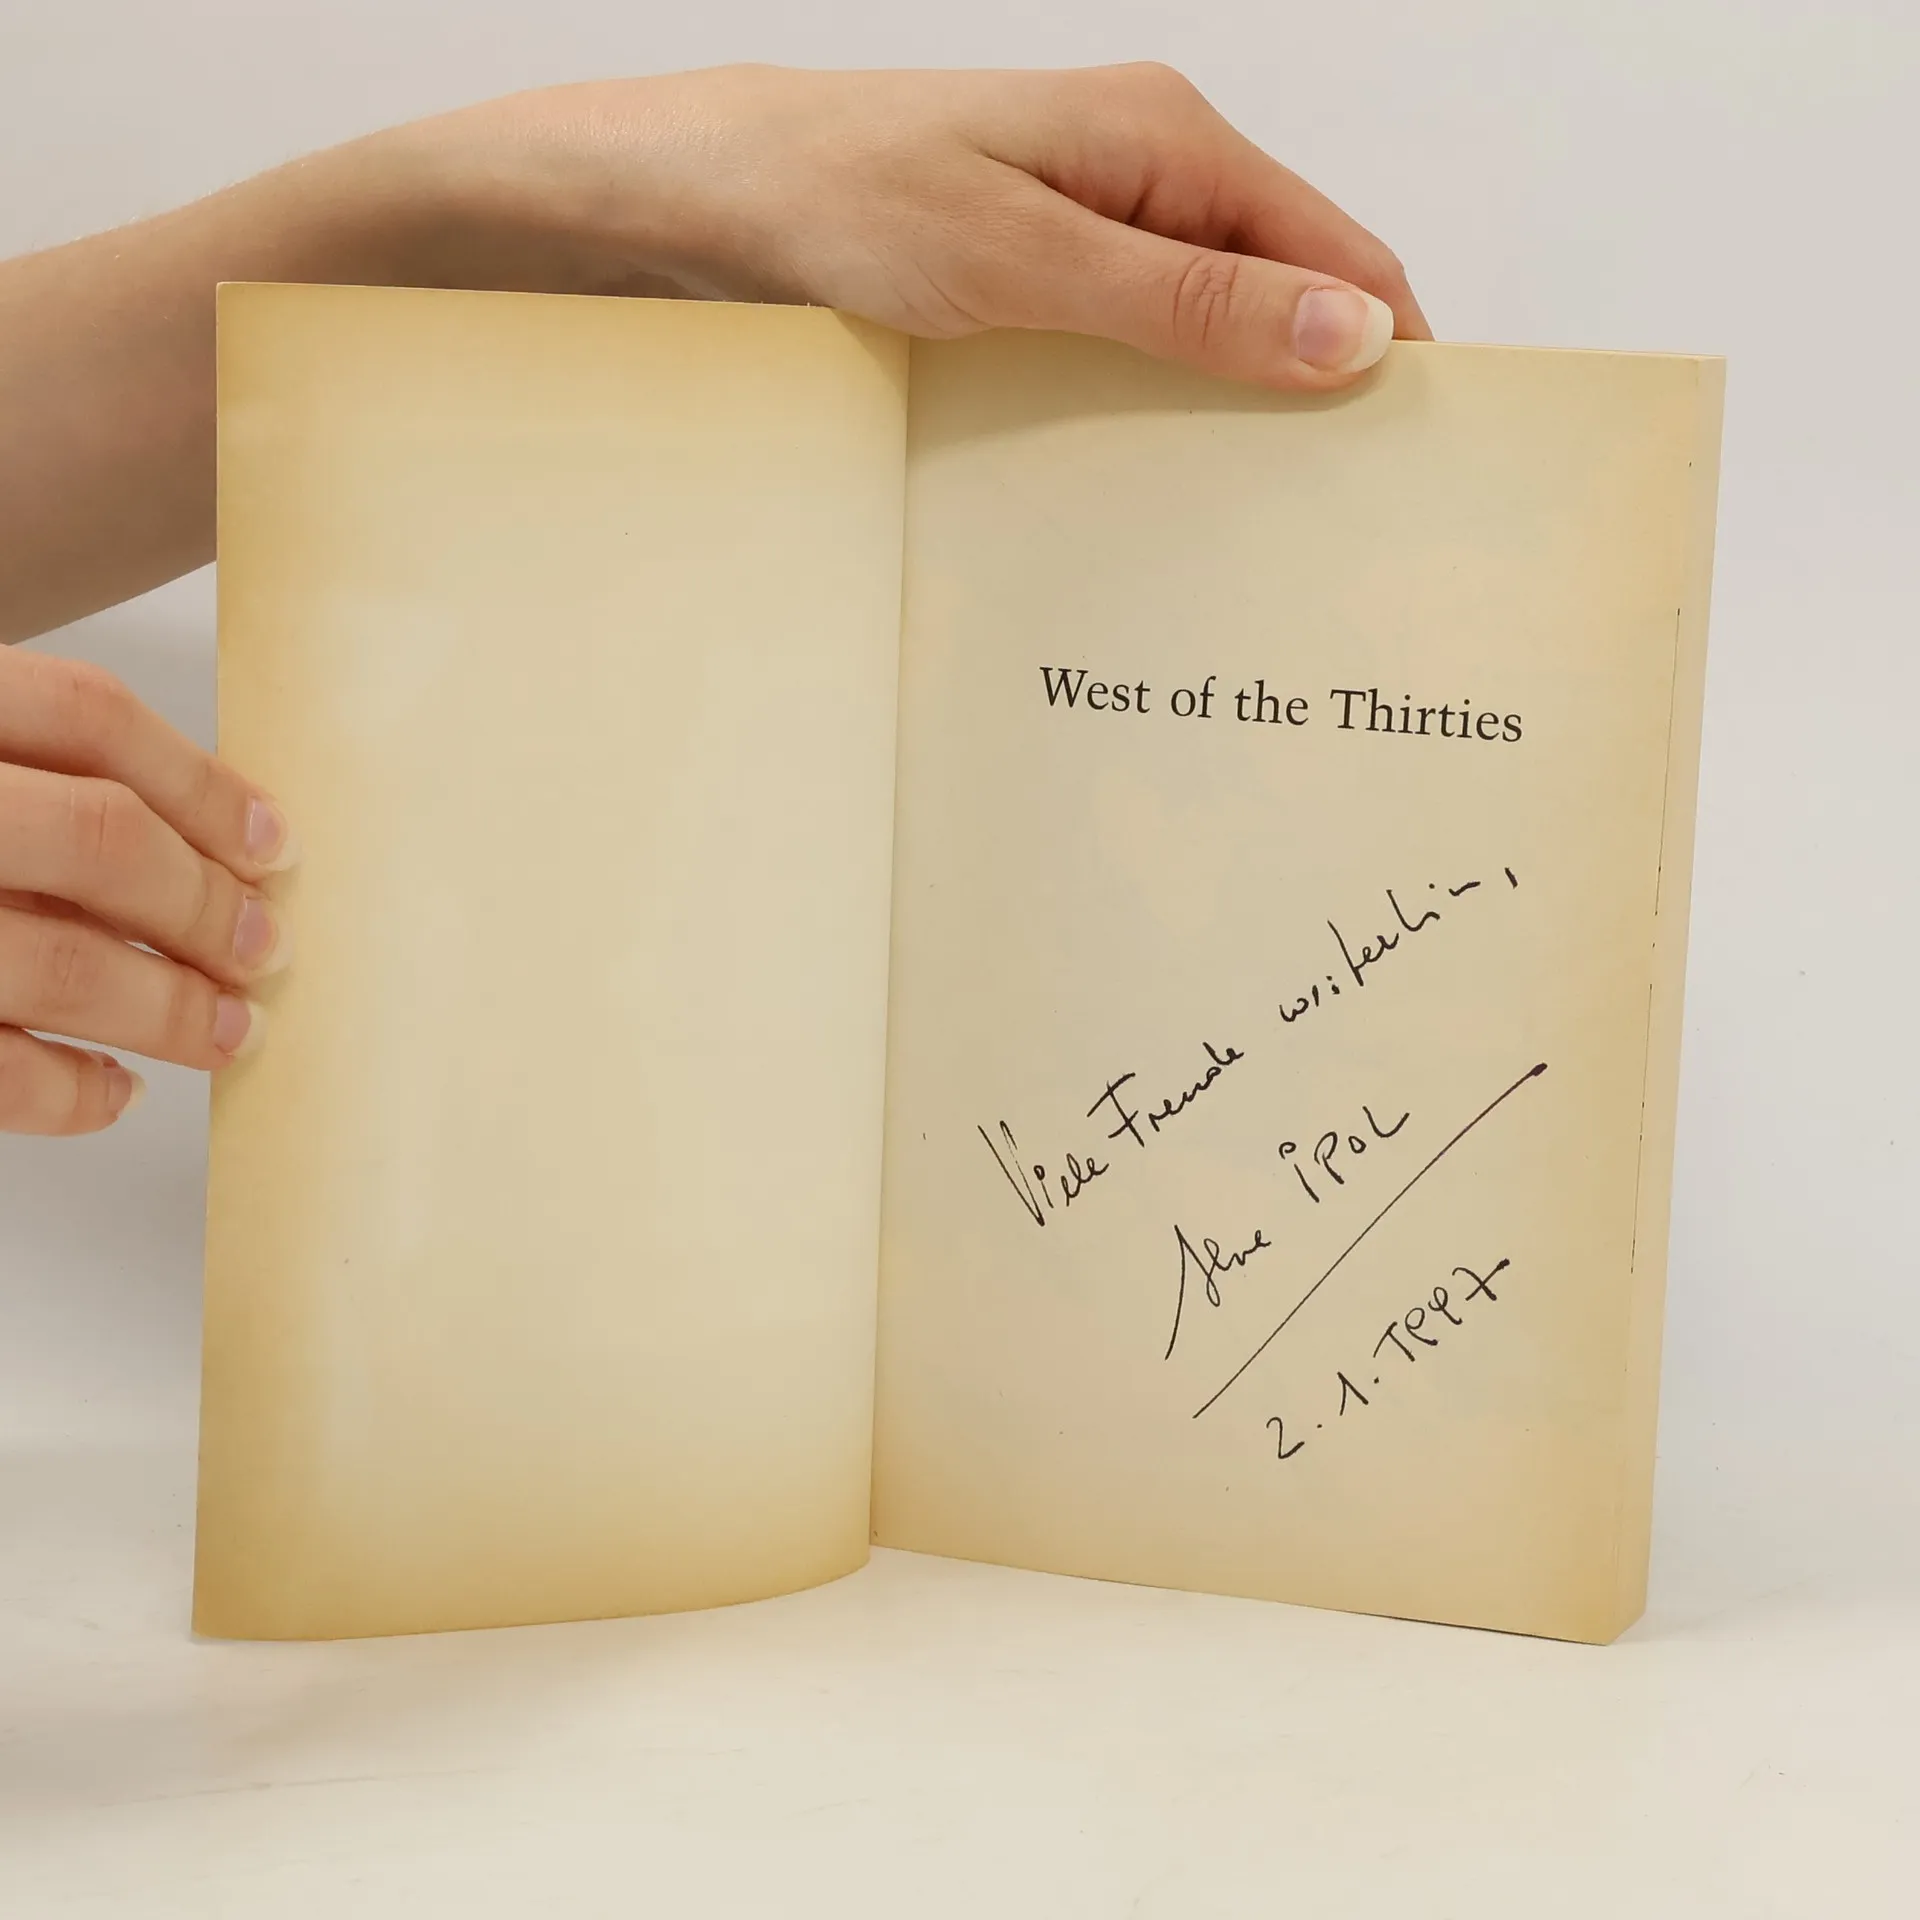 West of the Thirties
Viele Freude weiterhin,
İPOL
2.1.1997